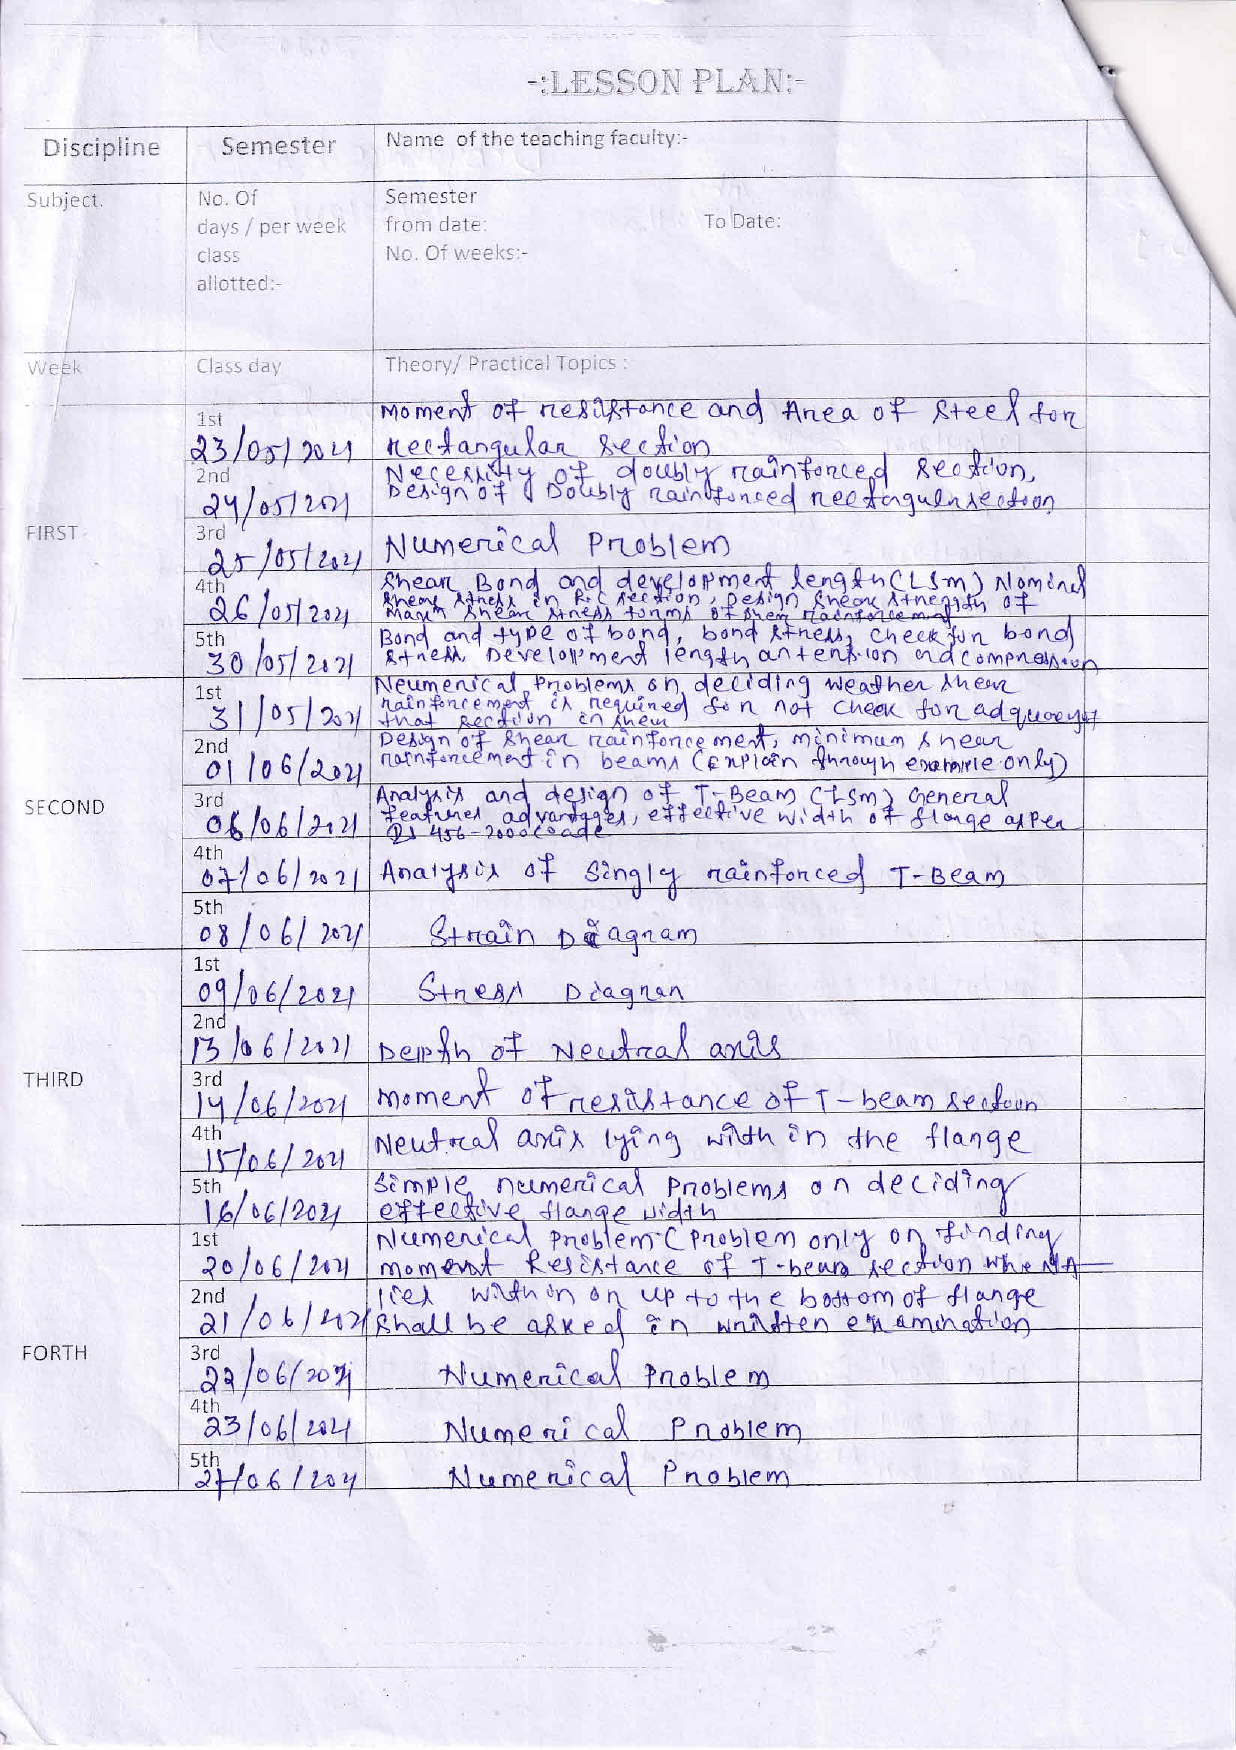 -:LESSON PLAN:-
Discipline Semester Name of the teaching faculty:-
Subject. No. Of Semester
days / per week from date: To Date:
class No. Of weeks:-
allotted:-
Week Class day Theory/ Practical Topics :
FIRST
1st Moment of resistance and Area of Steel for
23/05/2021 rectangular section
2nd Necessity of doubly rainforced section,
24/05/2021 Design of Doubly rainforced rectangular section
3rd
25/05/2021 Numerical Problem
4th Shear Bond and development length (LSM) Nominal
26/05/2021 shear stress in R.C section, Design shear strength of
Maxm shear stress forms of shear rainforcement
5th Bond and type of bond, bond stress, check for bond
30/05/2021 stress, Development length an tension and compression
SECOND
1st Neumerical Problems on deciding weather shear
31/05/2021 rainforcement is required for not check for adquecyof
that section in shear
2nd Design of shear rainforcement, minimum shear
01/06/2021 rainforcement in beams (Explain through example only)
3rd Analysis and design of T-Beam (LSM) General
06/06/2021 features advantages, effective width of flange as per
IS 456-2000 coade
4th
07/06/2021 Analysis of Singly rainforced T-Beam
5th
08/06/2021 Strain Diagram
THIRD
1st
09/06/2021 Stress Diagran
2nd
13/06/2021 Depth of Neutral axis
3rd
14/06/2021 Moment of resistance of T-beam section
4th
15/06/2021 Neutral axis lying with in the flange
5th Simple numerical problems on deciding
16/06/2021 effective flange width
FORTH
1st Numerical problem (problem only on finding
20/06/2021 moment Resistance of T-beam section whe NA
2nd lies within or up to the bottom of flange
21/06/2021 shall be asked in written examination
3rd
22/06/2021 Numerical Problem
4th
23/06/2021 Numerical Problem
5th
27/06/2021 Numerical Problem